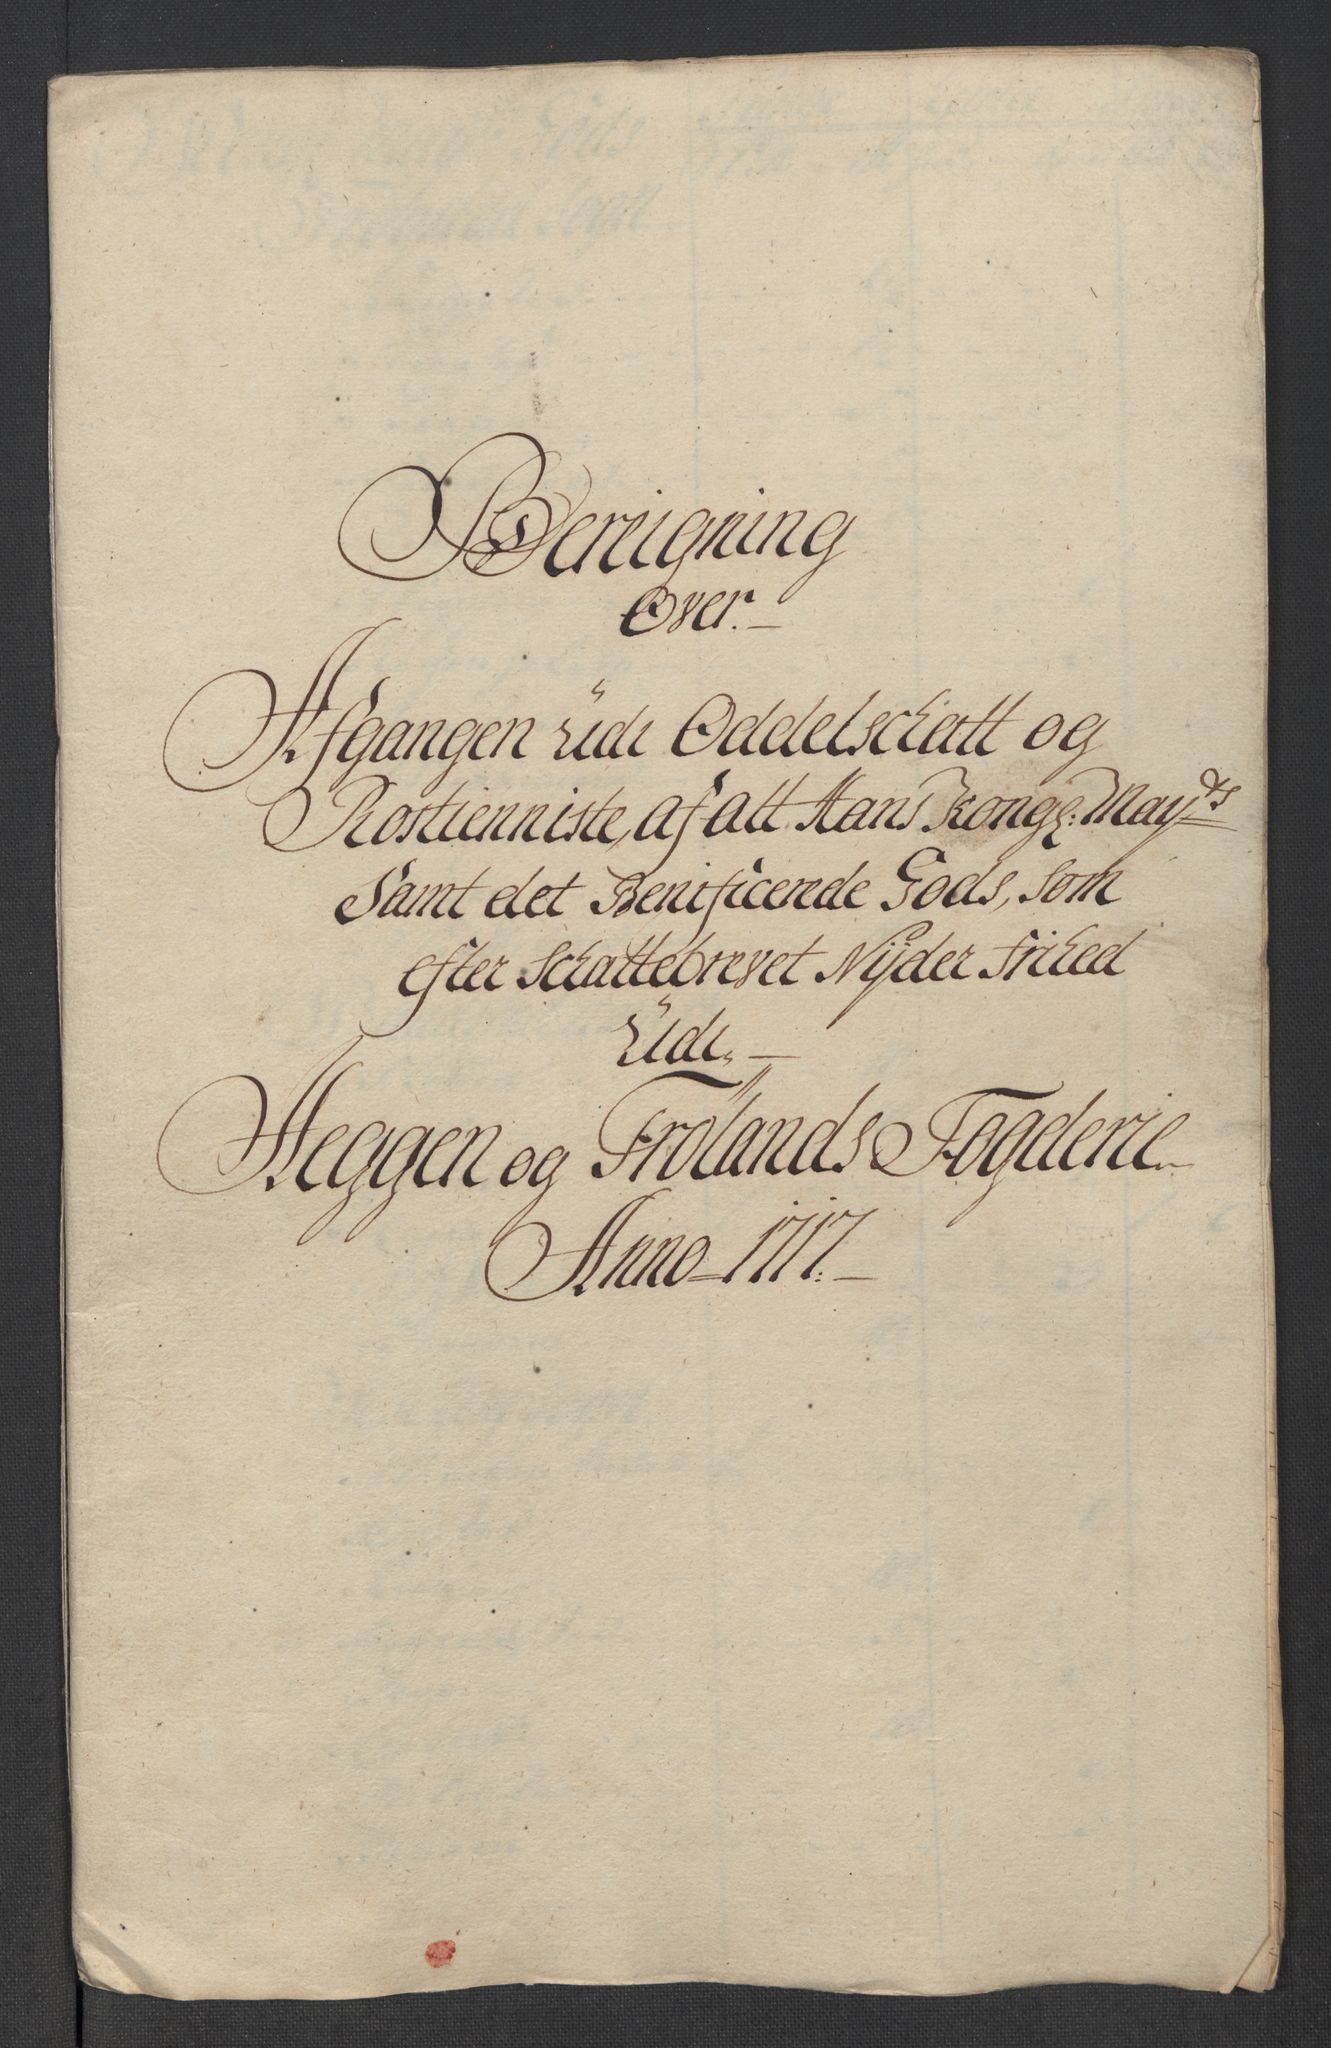 Bereigning
Over.
Afgangen udi Oddelschatt og
Rostienniste, af alt Hans Kongl: Mayts
Samt det Benificerede Gods, som
efter Schattebrevet Nÿder frihed
udi.
Heggen og Frølands Fogderie
Anno 1717.